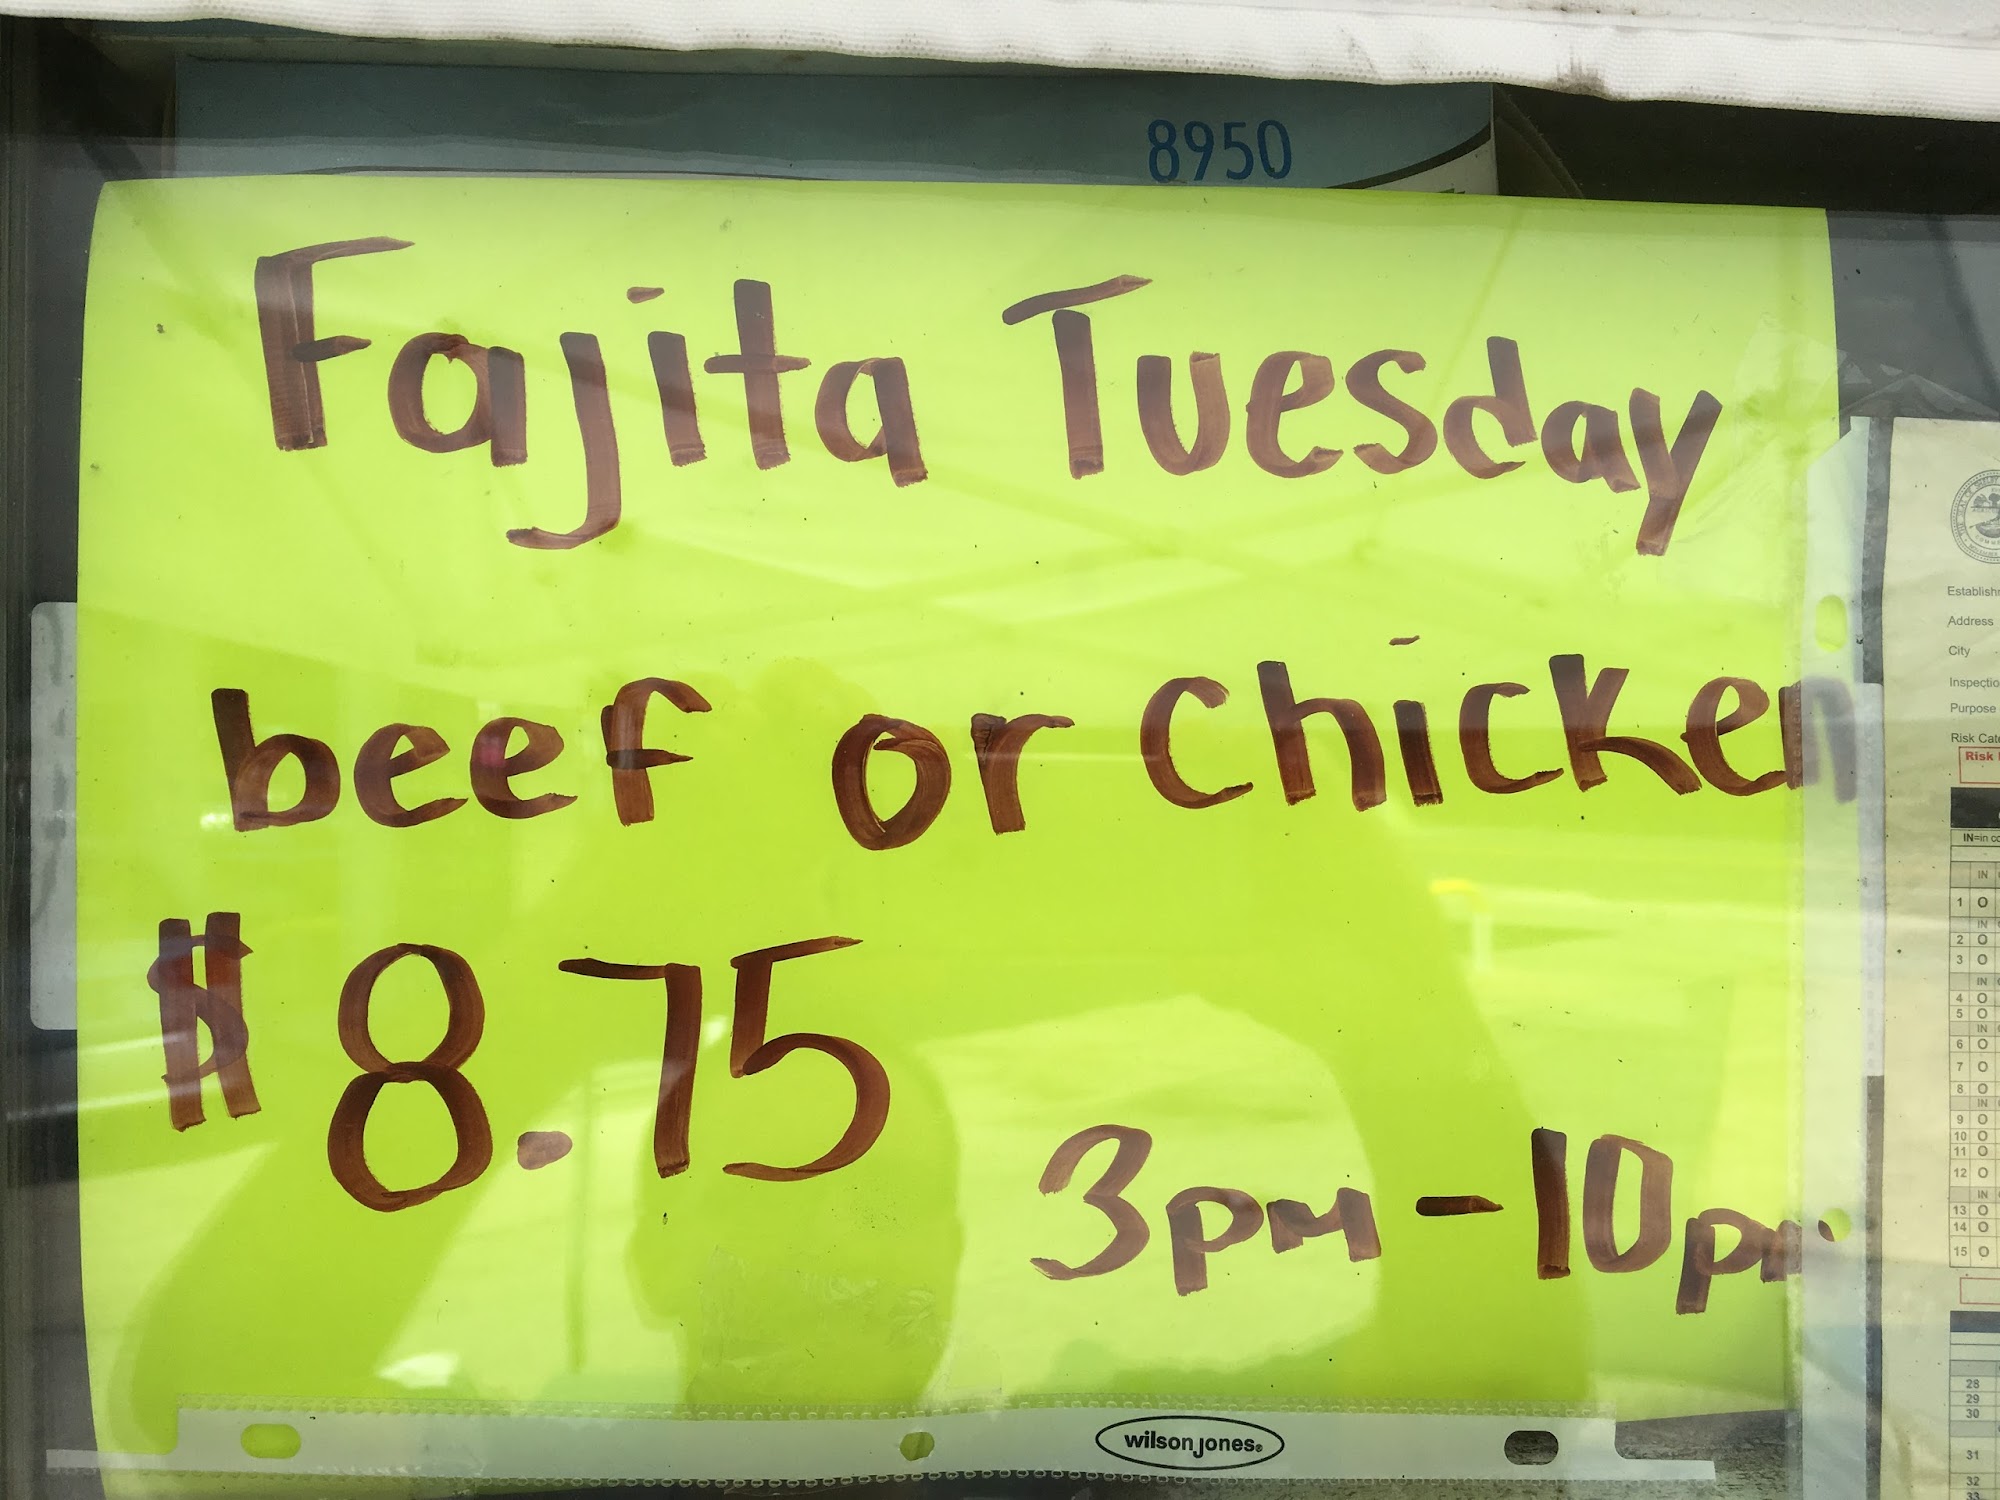 8950
Fajita Tuesday
beef or chicken
$8.75
3pm - 10pm
wilson jones®
Address
City
Purpose
IN
1 O
IN
2 O
3 O
IN
4 O
5 O
IN
6 O
7 O
8 O
IN
9 O
10 O
11 O
12 O
IN
13 O
14 O
15 O
28
29
30
31
32
33